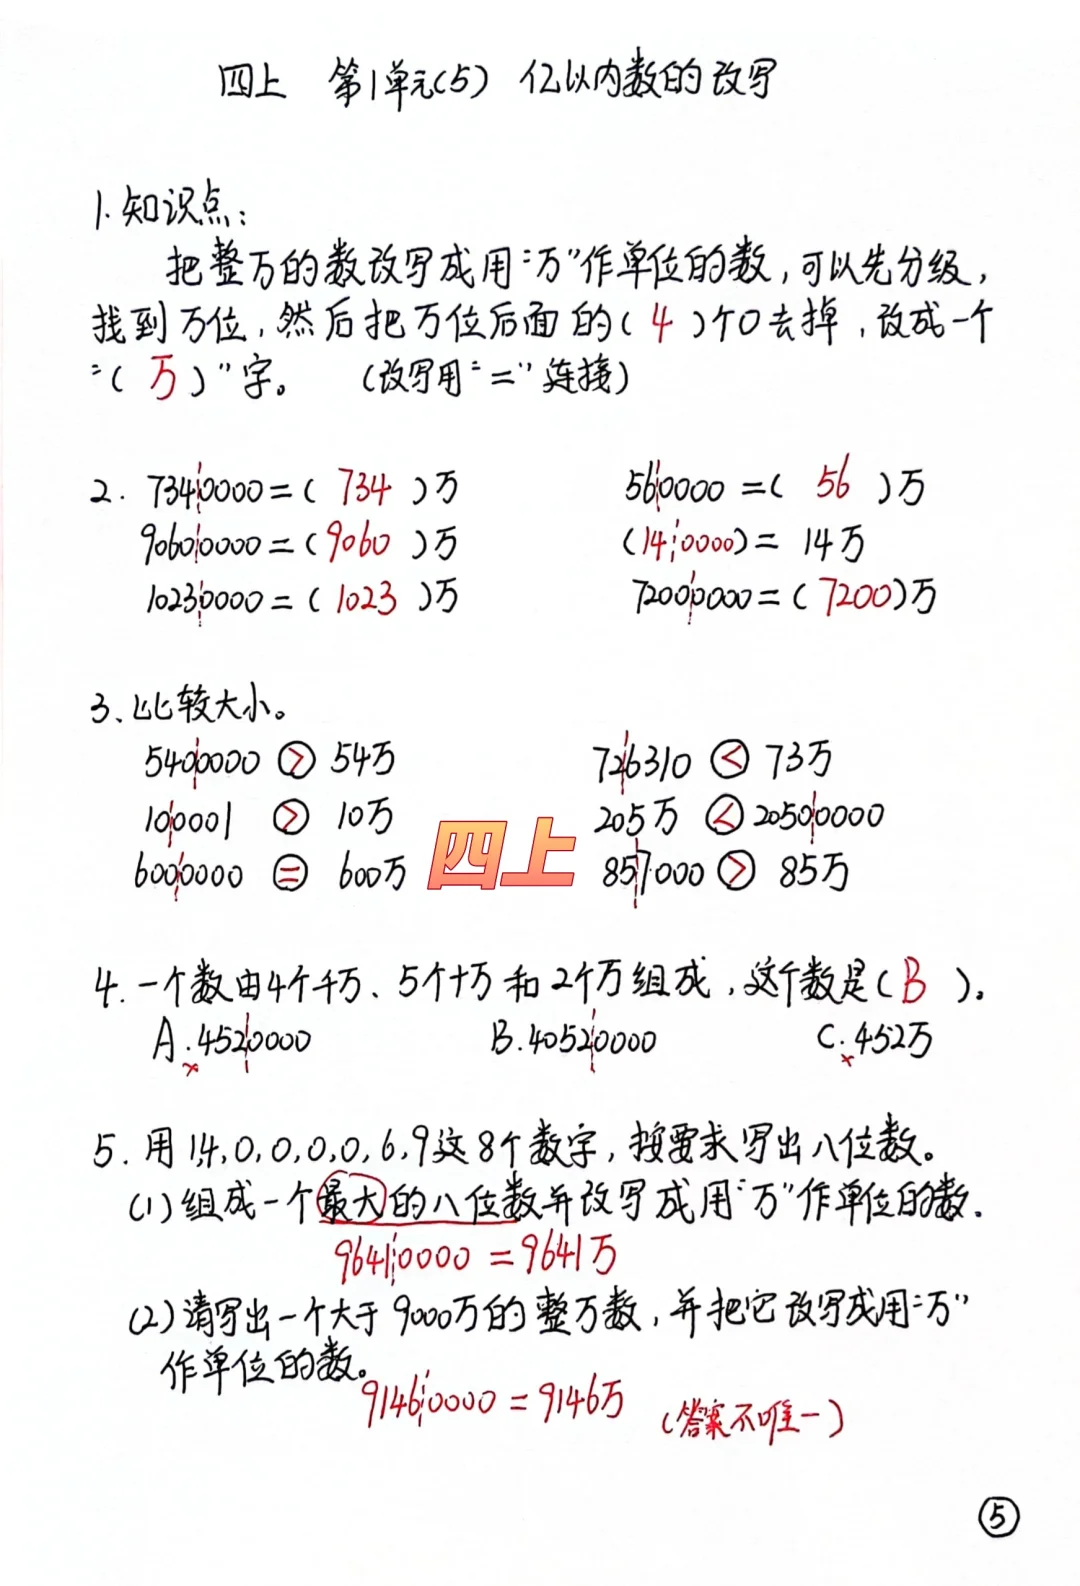 四上 第1单元(5) 亿以内数的改写
1.知识点:
把整万的数改写成用“万”作单位的数,可以先分级,
找到万位,然后把万位后面的(4)个0去掉,改成一个
“(万)”字。 (改写用“=”连接)
2. 7340000=(734)万 560000=(56)万
90600000=(9060)万 (140000)=14万
10230000=(1023)万 72000000=(7200)万
3、比较大小。
5400000 > 54万 726310 < 73万
100001 > 10万 205万 < 20500000
6000000 = 600万 857000 > 85万
四上
4.一个数由4个千万、5个十万和2个万组成,这个数是(B)。
A.4520000 B.40520000 C.452万
× ×
5.用1,4,0,0,0,0,6,9这8个数字,按要求写出八位数。
(1)组成一个最大的八位数并改写成用“万”作单位的数.
96410000=9641万
(2)请写出一个大于9000万的整万数,并把它改写成用“万”
作单位的数。
91460000=9146万 (答案不唯一)
⑤